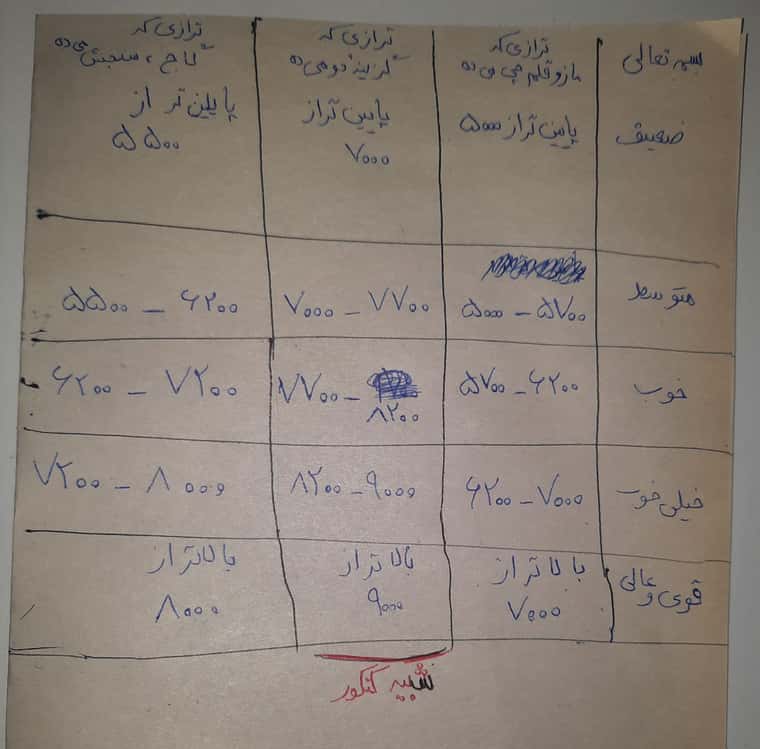 بسمه تعالی
ترازی که
مازوقلم چی می ده
ترازی که
گزینه دو می ده
ترازی که
گاج، سنجش می ده
ضعیف
پایین تراز ۵۰۰۰
پایین تراز
۷۰۰۰
پایین تر از
۵۵۰۰
متوسط
۵۰۰۰ - ۵۷۰۰
۷۰۰۰ - ۷۷۰۰
۵۵۰۰ - ۶۲۰۰
خوب
۵۷۰۰ - ۶۲۰۰
۷۷۰۰ -
۸۲۰۰
۶۲۰۰ - ۷۲۰۰
خیلی خوب
۶۲۰۰ - ۷۰۰۰
۸۲۰۰ - ۹۰۰۰
۷۲۰۰ - ۸۰۰۰
قوی و عالی
بالاتر از
۷۰۰۰
بالاتر از
۹۰۰۰
بالاتر از
۸۰۰۰
شبیه کنکور